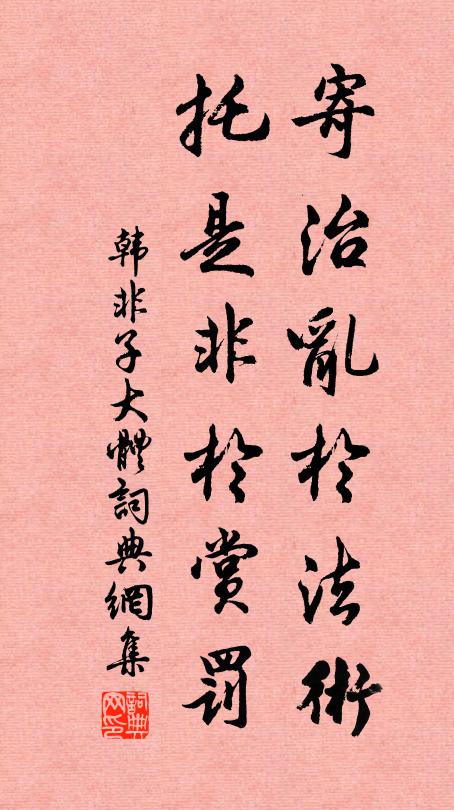 寄治亂於法術
托是非於賞罰
韩非子大體詞典網集
詞典網印